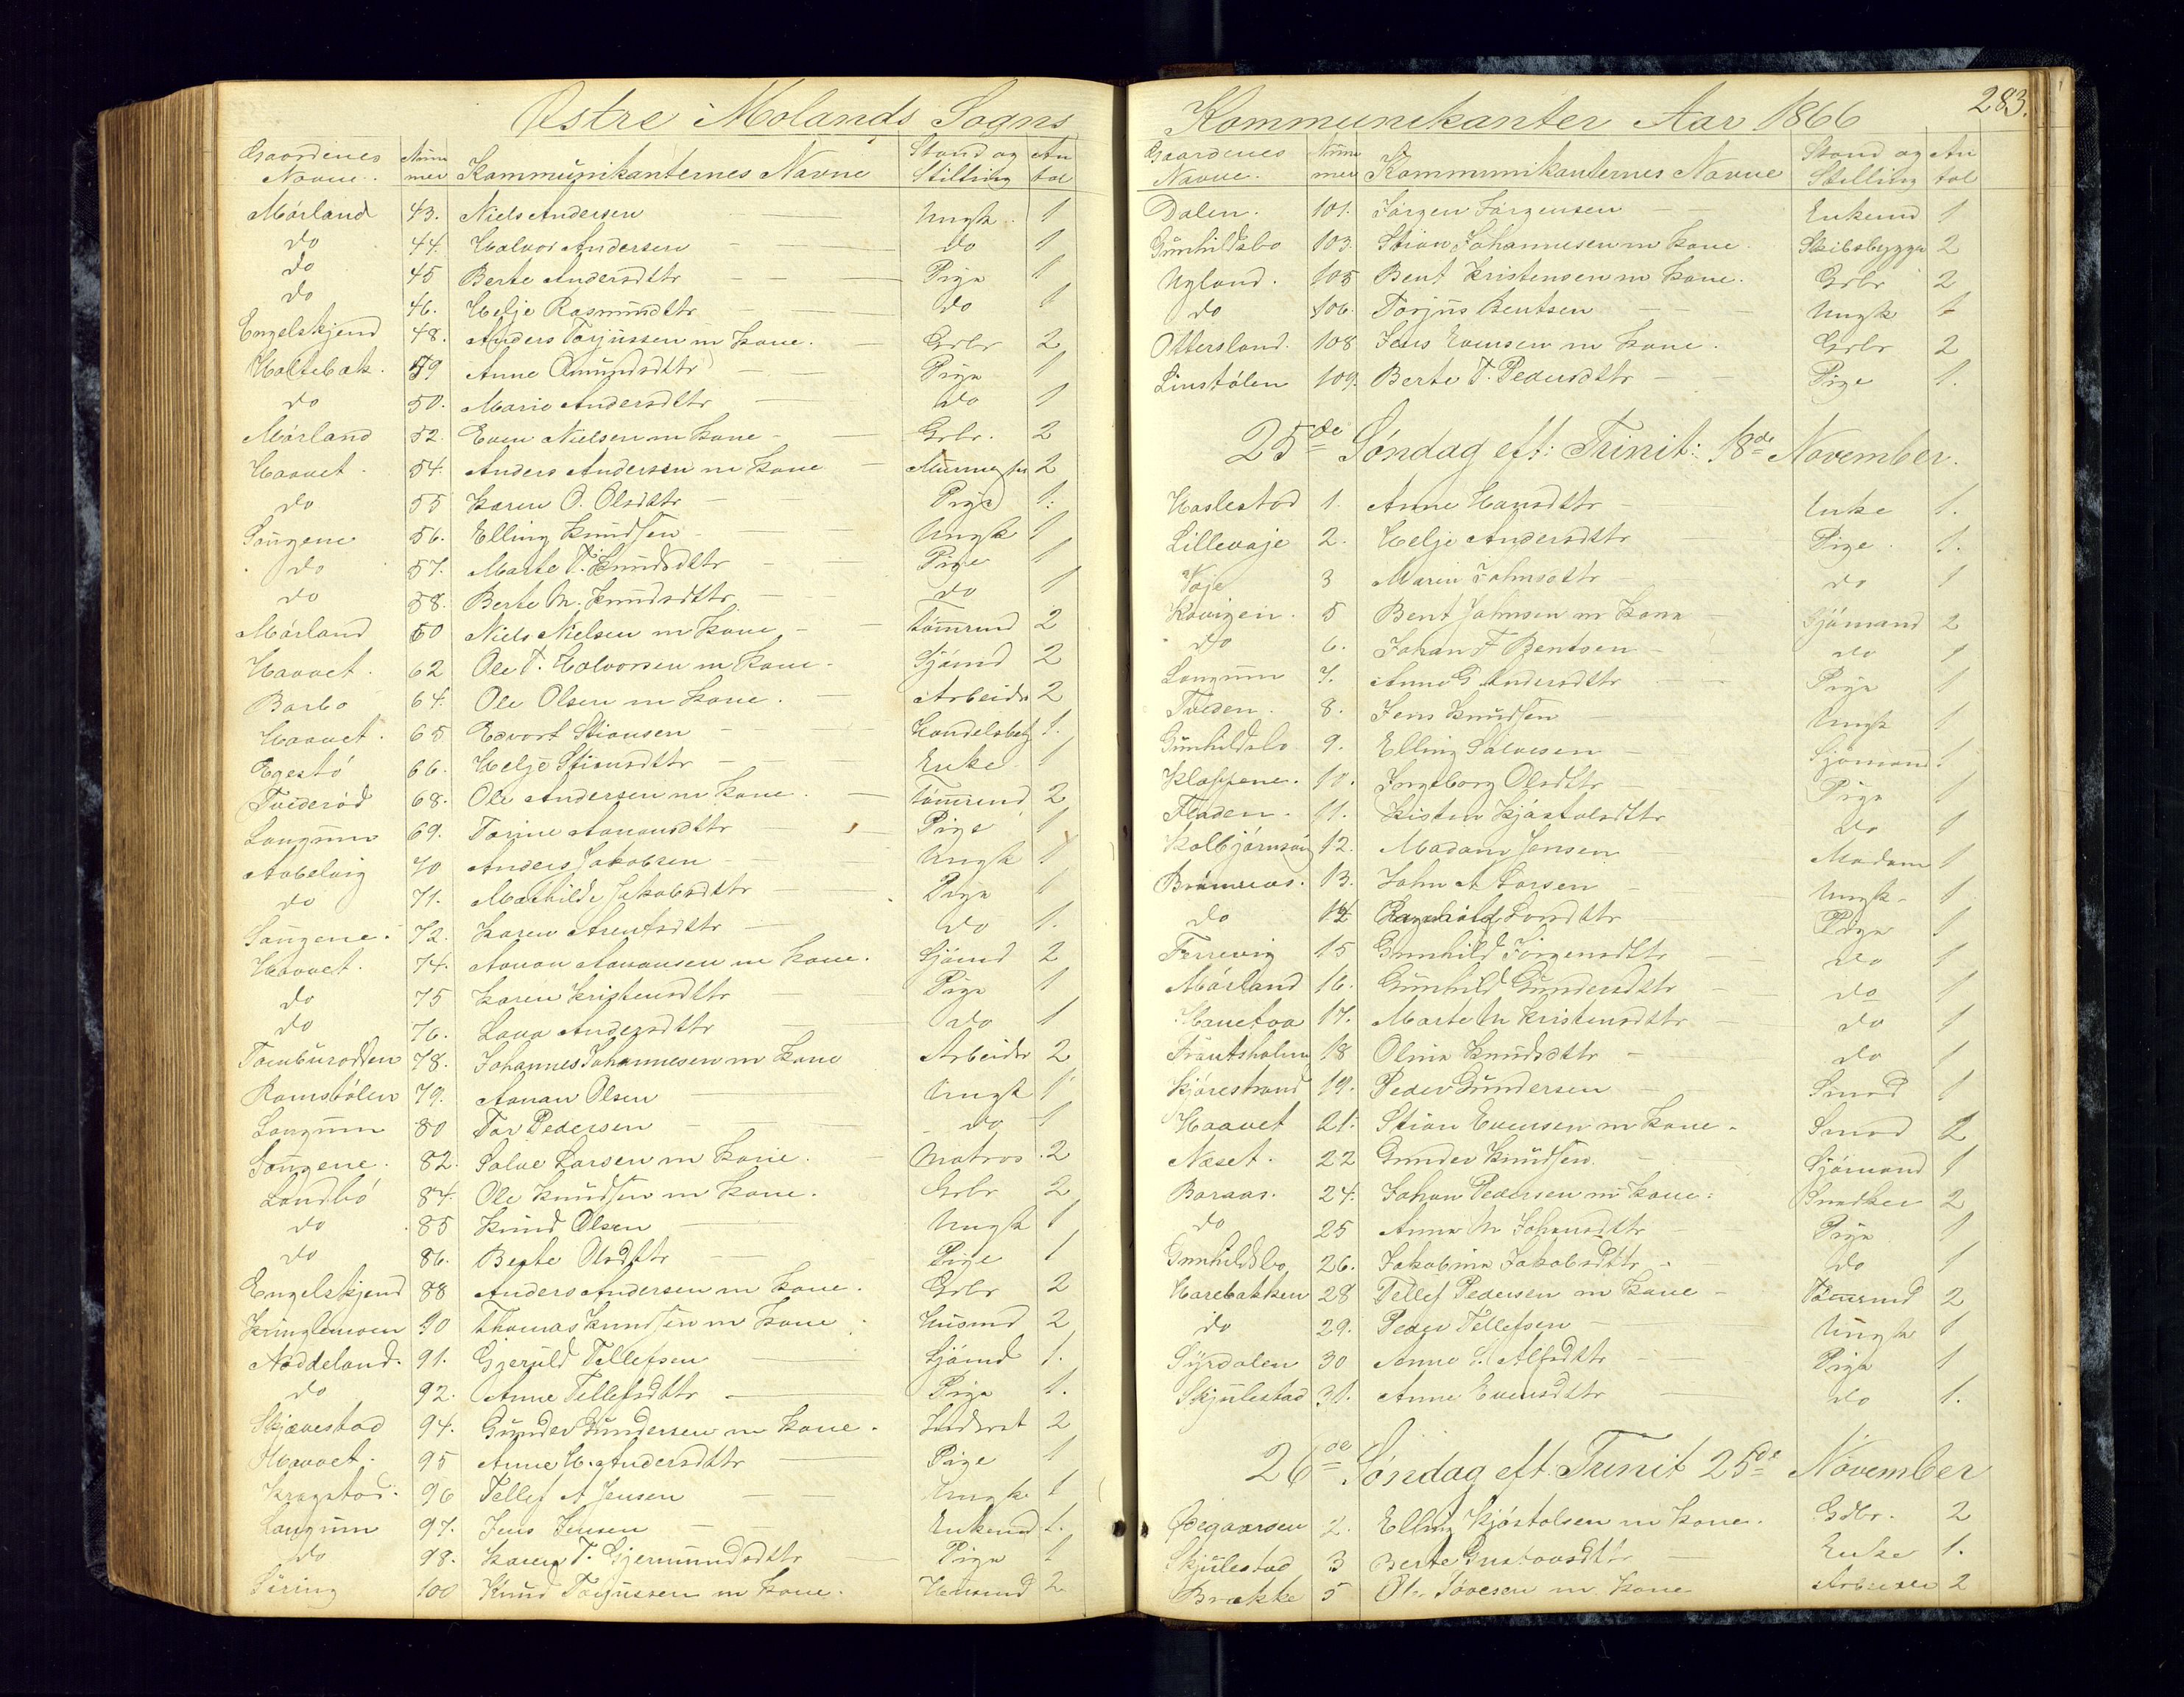 Østre Molands Sogns
Gaardenes Navne. Nummer Kommunikanternes Navne Stand og Stilling Antal
Mörland 43. Niels Andersen Ungk. 1
do 44. Halvor Andersen do 1
do 45 Berte Andersdttr Pige 1
do 46. Helje Rasmundttr do 1
Engelskjend 48. Anders Torjussen m Kone. Grbr 2
Holtebak. 49 Anne Omundsdttr Pige 1
do 50. Marie Andersdttr do 1
Mörland 52. Even Nielsen m Kone Grbr. 2
Haavet 54. Anders Andersen m Kone 2
do 55 Karen O. Olsdttr Pige 1.
Songene 56. Elling Knudsen Ungk 1
do 57. Marte T. Knudsdttr Pige 1
do 58. Berte M. Knudsdttr do 1
Mörland 60 Niels Nielsen m Kone Tömrmd 2
Haavet. 62 Ole T. Halvorsen m Kone. Sjömd 2
Barbo 64. Ole Olsen m Kone. Arbeidr 2
Haavet. 65 Edvart Stiansen Handelsbetj 1.
Egestö 66. Helje Stiansdttr Enke 1
Tvederöd 68. Ole Andersen m Kone. Tömrmd 2
Longum 69. Torine Aanonsdttr Pige 1
Aabelvig 70 Anders Jakobsen Ungk 1
do 71. Mathilde Jakobsdttr Pige 1
Songene. 72. Karen Arentsdttr do 1.
Haavet. 74. Aanon Aanonsen m Kone. Sjömd 2
do 75 Karen Kristensdttr Pige 1
do 76. Lava Andersdttr do 1
Tamburodden 78. Johannes Johannesen m Kone Arbeidr 2
Ramstölen 79. Aanan Olsen Ungk 1
Longum 80 Tor Pedersen do 1
Songene. 82. Salve Larsen m Kone. Matros. 2
Landbö 84. Ole Knudsen m Kone. Grbr 2
do 85 Knud Olsen Ungk 1
do 86. Berte Olsdttr Pige 1
Engelskjend 88 Anders Andersen m Kone. Grbr 2
Kringlemoen 90 Thomas Knudsen m Kone Husmd 2
Noddeland. 91. Gjeruld Tellefsen Sjömd 1.
do 92. Anne Tellefsdttr Pige 1.
Skjævestad 94. Gunder Gundersen m Kone. Inderst 2
Haavet. 95 Anne H. Andersdttr Pige 1
Kragstad. 96 Tellef A Jensen Ungk 1
Longum 97. Jens Jensen Enkemd 1.
do 98. Karen T. Gjermundsdttr Pige 1
Söring 100 Knud Torjussen m Kone. Husmd 2
Kommunikanter Aar 1866 283.
Gaardenes Navne. Nummer Kommunikanternes Navne Stand og Stilling Antal
Dalen. 101. Jörgen Jörgensen Enkemd 1
Gunhildsbo 103. Stian Johannesen m Kone. Skibsbygger 2
Ugland. 105 Bent Kristensen m Kone. Grbr 2
do 106. Torjus Bentsen Ungk 1
Ottersland. 108 Jens Evensen m Kone. Grbr 2
Linstölen 109. Berte T. Pedersdttr Pige 1.
25de Søndag eft: Trinit: 18de November.
Haslestad 1. Anne Hansdttr Enke 1.
Lillevaje 2. Helje Andersdttr Pige 1.
Vaje 3 Maren Johnsdttr do 1
Kovigen. 5 Bent Johnsen m Kone Sjömand 2
do 6. Johan F Bentsen do 1
Longum 7. Anne G Andersdttr Pige 1
Tveden. 8. Jens Knudsen Ungk 1
Gunhildsbo 9. Elling Salvesen Sjömand 1
Kloppene. 10. Ingeborg Olsdttr Pige 1
Fladen. 11. Kisten Kjöstolsdttr do 1
Kolbjörnsvig 12. Madam Jensen Madam 1
13. John A Larsen Ungk 1
do 14 Ragnhild Larsdttr Pige 1
Ferrevig 15 Gunhild Jörgensdttr do 1
Mörland 16. Gunhild Gundersdttr do 1
Hanetoa 17. Marte M Kristensdttr do 1
18 Olina Knudsdttr do 1
Kjörestrand 19. Peder Gundersen Smed 1
Haavet 21. Stian Evensen m Kone. Smed 2
Næset. 22 Gunder Knudsen Sjömand 1
Boraas. 24. Johan Pedersen m Kone. Snedker 2
do 25 Anna M Johansdttr Pige 1
Gunhildsbo 26. Jakobine Jakobsdttr do 1
Harebakken 28 Tellef Pedersen m Kone Tömrmd 2
do 29. Peder Tellefsen Ungk 1
Syrdalen 30 Anne S. Alfsdttr Pige 1
Skjulestad 31. Anne Evensdttr do 1.
26de Søndag eft. Trinit 25de November
Ødegaarden 2. Elling Kjöstolsen m Kone. Gdbr. 2
Skjulestad 3 Berte Gustavsdttr Enke 1.
Brække 5 Ole Tovesen m. Kone Arbeider 2